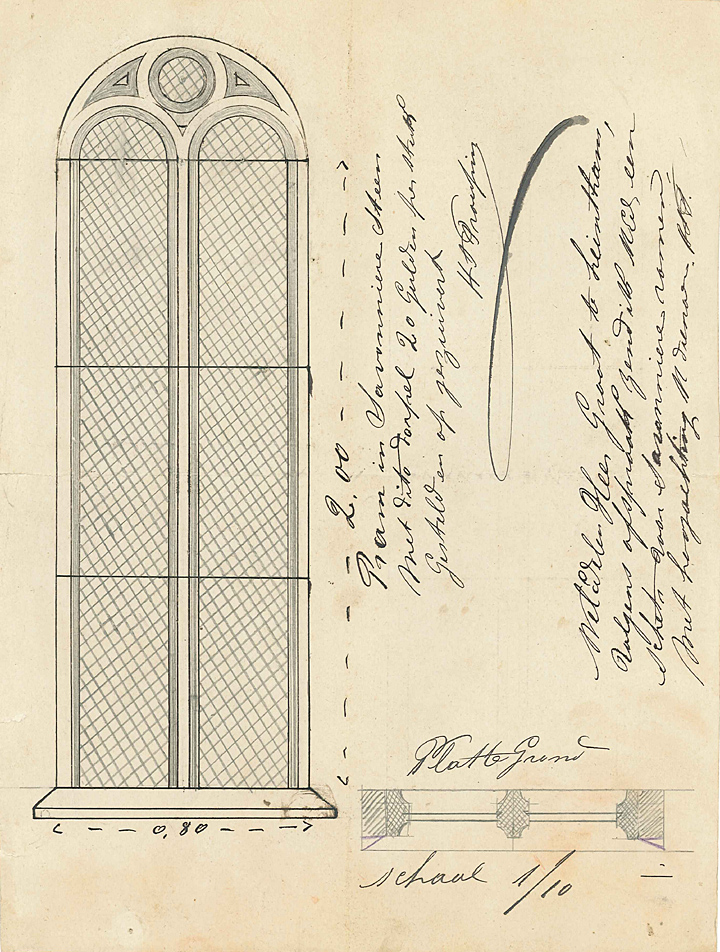 2.00
Raam in Savonniere Steen
Met dito dorpel 20 Gulden per stuk
Gesteld en op gezuivert
WelEdelen Heer Groot te
Volgens afspraak zend ik UEd een
schets voor Savonniere ramen
Met hoogachting UEd dienaar
0,80
Platte Grond
schaal 1/10